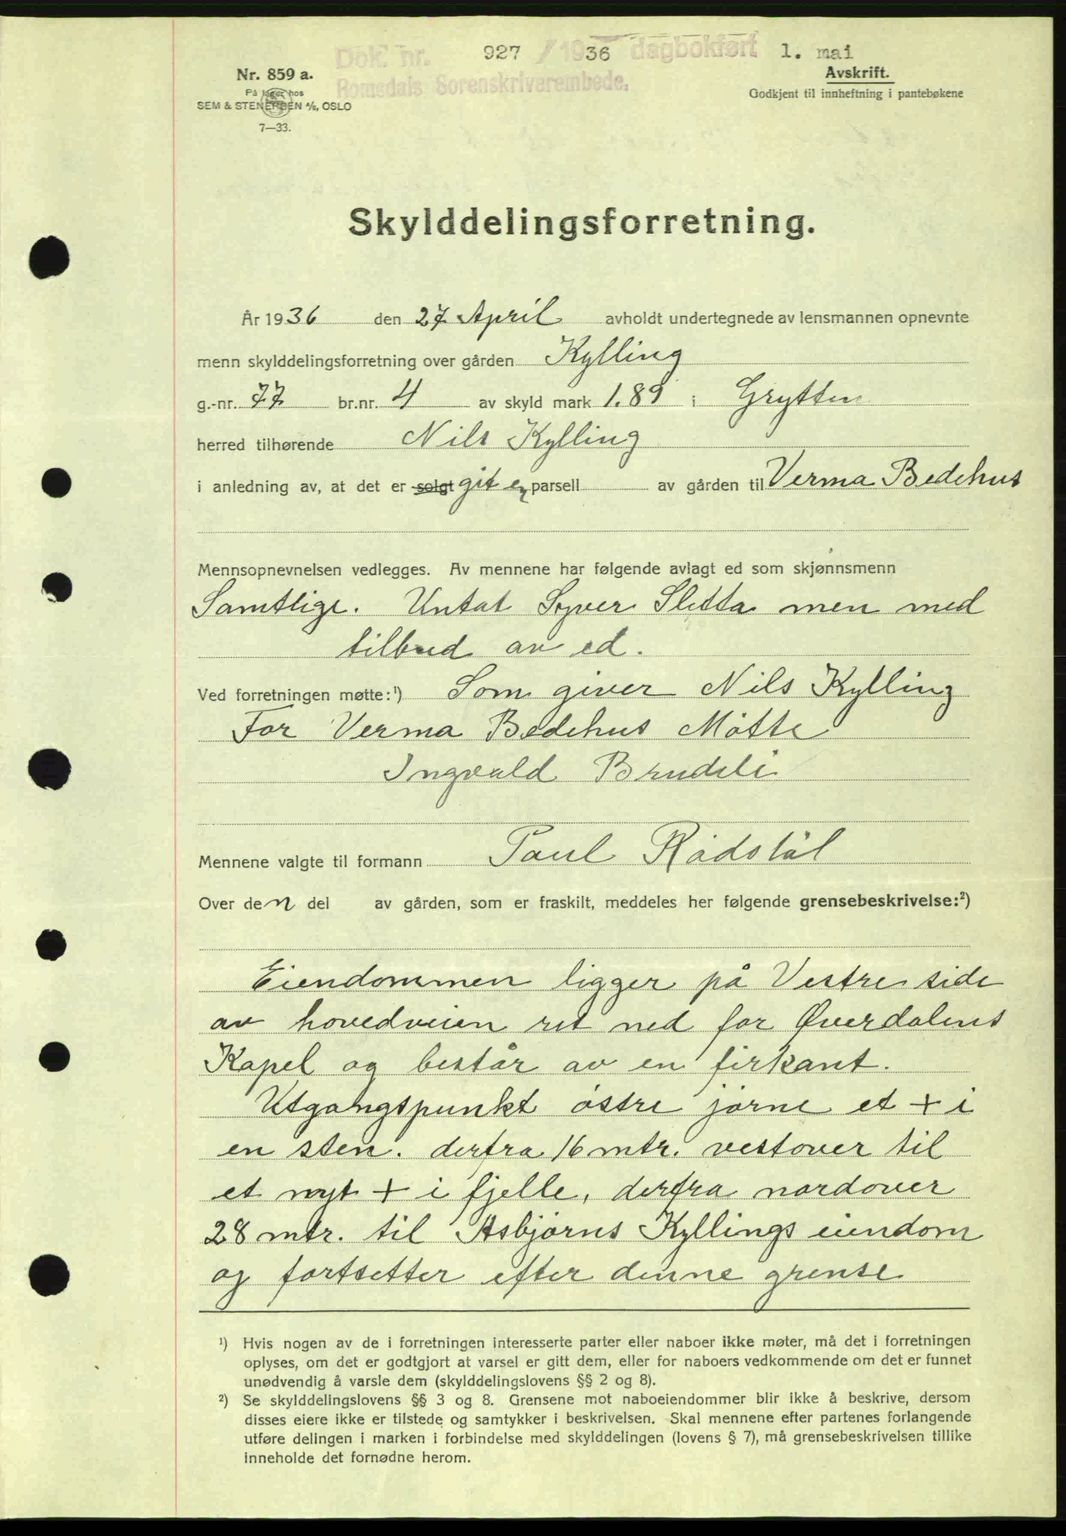 Dok. nr. 927 / 1936 dagbokført 1. mai
Romsdals Sorenskriverembede.
Nr. 859 a.
På lager hos
SEM & STENERSEN A/S, OSLO
7—33.
Avskrift.
Godkjent til innheftning i pantebøkene
Skylddelingsforretning.
År 1936 den 27 April avholdt undertegnede av lensmannen opnevnte
menn skylddelingsforretning over gården Kylling
g.-nr. 77 br.nr. 4 av skyld mark 1.89 i Grytten
herred tilhørende Nils Kylling
i anledning av, at det er solgt git en parsell av gården til Verma Bedehus
Mennsopnevnelsen vedlegges. Av mennene har følgende avlagt ed som skjønnsmenn
Samtlige. Untat Syver Sletta men med
tilbud av ed.
Ved forretningen møtte:¹) Som giver Nils Kylling
For Verma Bedehus Møtte
Ingvald Brudeli
Mennene valgte til formann Paul Rødstøl
Over den del av gården, som er fraskilt, meddeles her følgende grensebeskrivelse:²)
Eiendommen ligger på Vestre side
av hovedveien ret ned for Øverdalens
Kapel og består av en firkant.
Utgangspunkt østre jørne et + i
en sten. derfra 16 mtr. vestover til
et nyt + i fjelle, derfra nordover
28 mtr. til Asbjørns Kyllings eiendom
og fortsetter efter denne grense
¹) Hvis nogen av de i forretningen interesserte parter eller naboer ikke møter, må det i forretningen
oplyses, om det er godtgjort at varsel er gitt dem, eller for naboers vedkommende om det er funnet
unødvendig å varsle dem (skylddelingslovens §§ 2 og 8).
²) Se skylddelingslovens §§ 3 og 8. Grensene mot naboeiendommer blir ikke å beskrive, dersom
disses eiere ikke er tilstede og samtykker i beskrivelsen. Skal mennene efter partenes forlangende
utføre delingen i marken i forbindelse med skylddelingen (lovens § 7), må grensebeskrivelsen tillike
inneholde det fornødne herom.